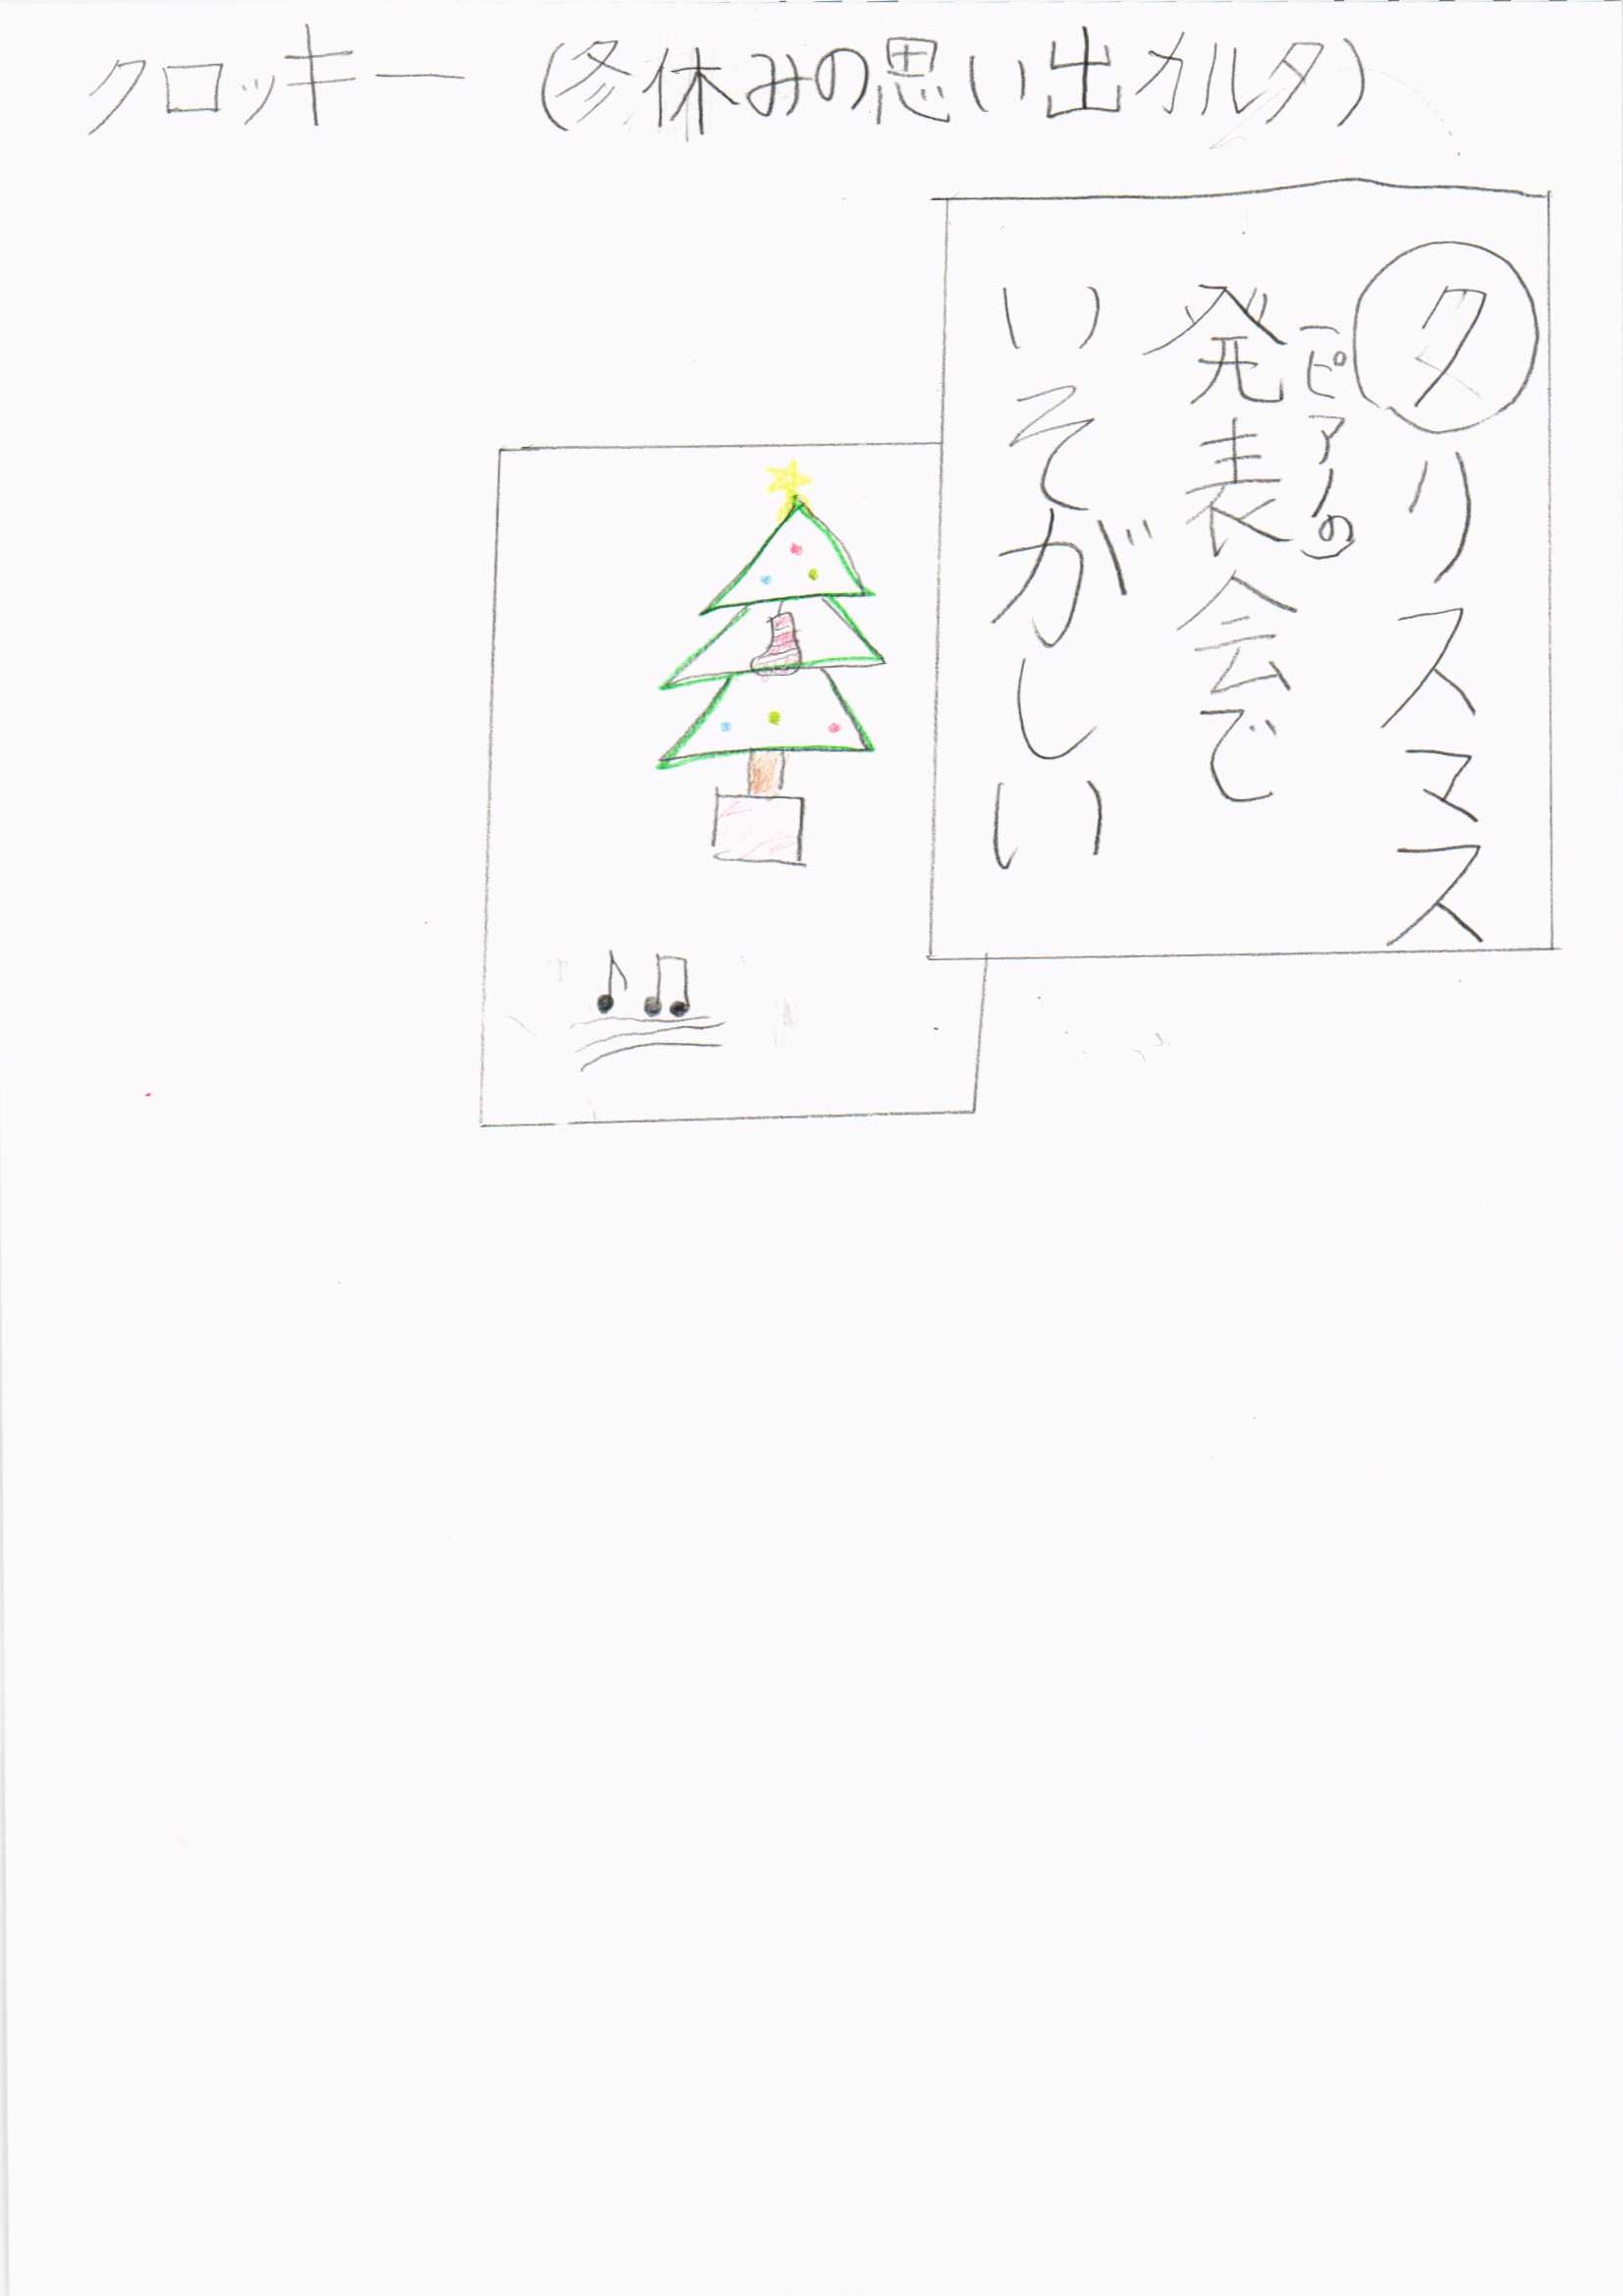 クロッキー (冬休みの思い出カルタ)
クリスマス
(ピアノの)
発表会で
いそがしい